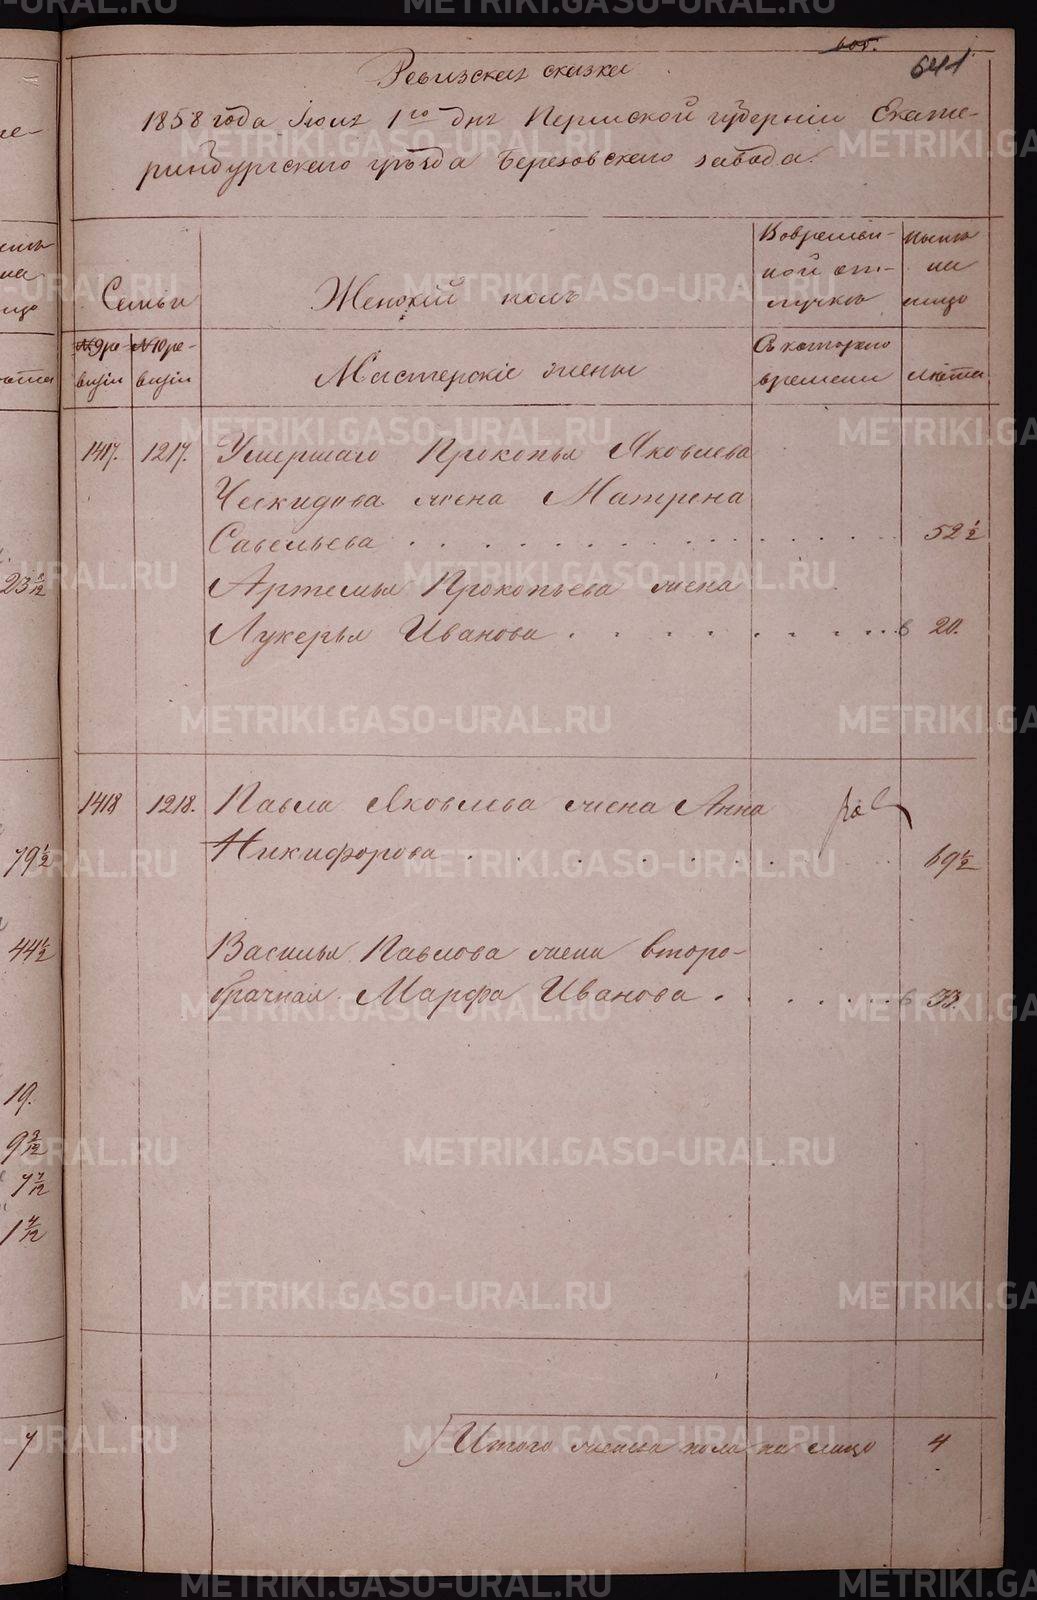 605.
641
Ревизская сказка
1858 года Июня 1го дня Пермской губерніи Екате-
ринбургскаго уѣзда Березовскаго завода.
Семьи
Женскій полъ
Во времен-
ной от-
лучкѣ
Нынѣ
на
лицо
№ 9 ре-
визіи
№ 10 ре-
визіи
Мастерскіе жены
Съ котораго
времени
Лѣта
1417.
1217.
Умершаго Прокопья Яковлева
Ческидова жена Матрена
Савельева
52 1/2
Артемья Прокопьева жена
Лукерья Иванова
20.
1418
1218.
Павла Яковлева жена Анна
Никифорова
69 1/2
Василья Павлова жена второ-
брачная Марфа Иванова
33.
Итого женска пола на лицо
4
23 2/12
79 1/2
44 1/2
19.
9 3/12
7 7/12
1 4/12
7
METRIKI.GASO-URAL.RU